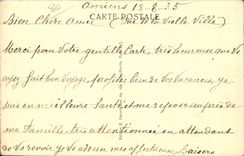 Amiens 18-9-35
CARTE POSTALE
Bien Chère Amie (Rue de la Vieille Ville)
Merci pour Votre gentille Carte, très heureuse que Vo
ayez fait bon Voyage profitez bien de vos Vacances, Je
suis en meilleure Santé et me repose auprès de
ma Famille très attentionnée en attendant
de Vs revoir je Vs adresse mes affectueux Baisers